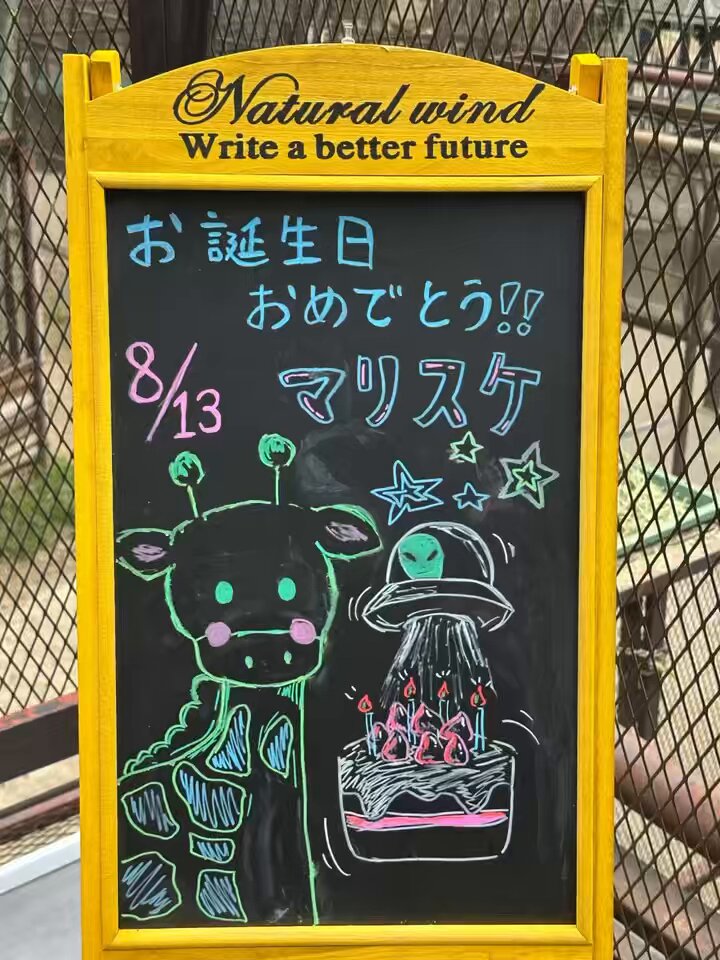 Natural wind
Write a better future
お誕生日
おめでとう!!
8/13
マリスケ